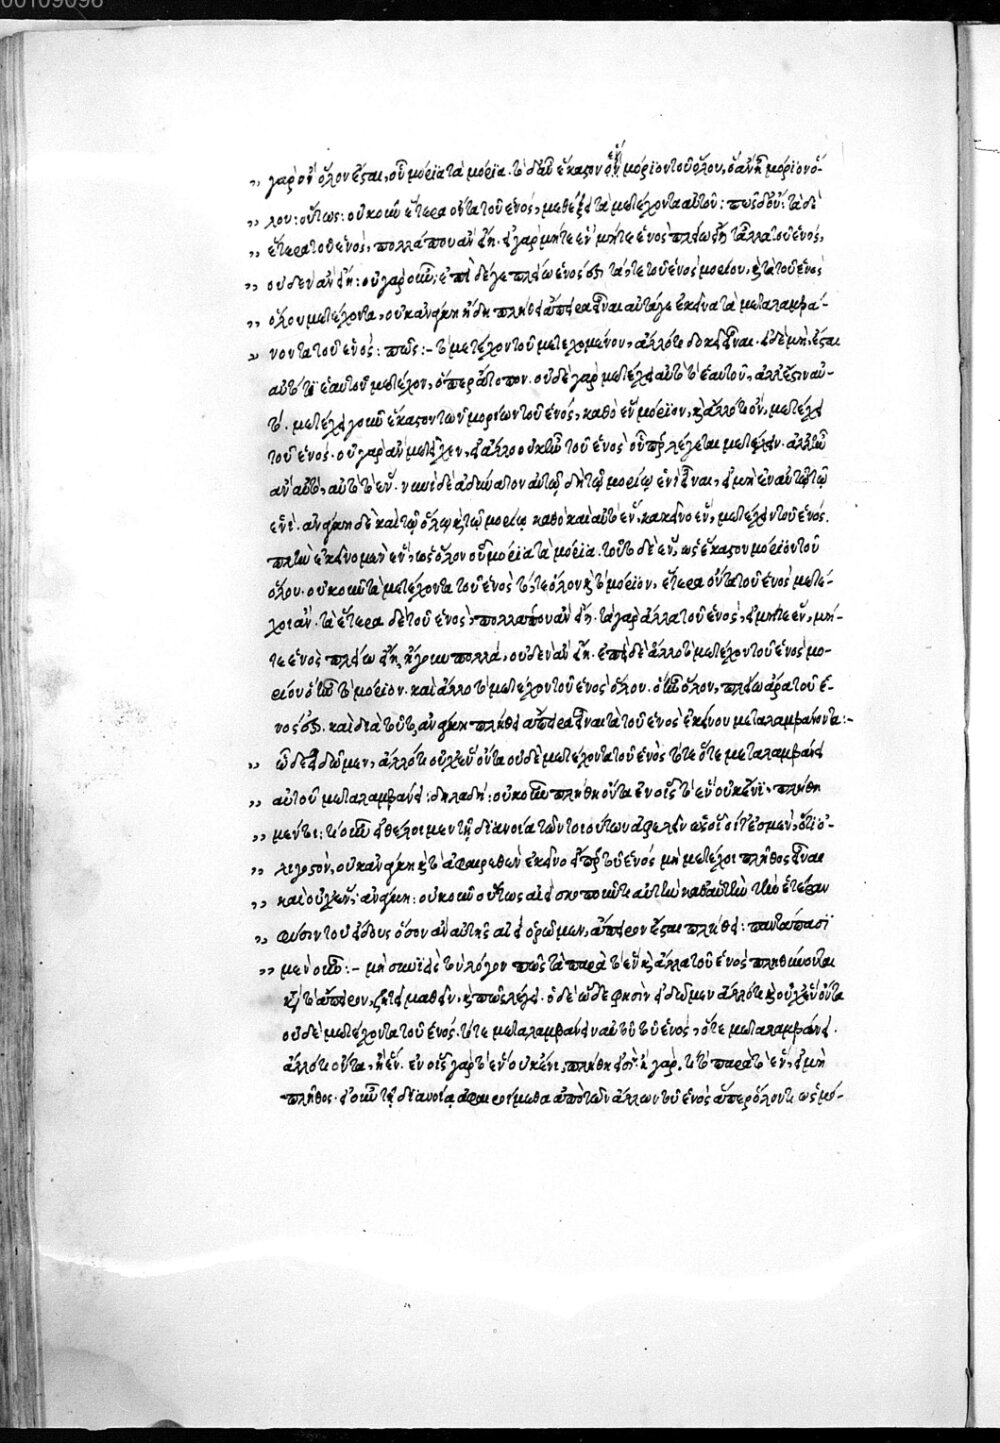 00109098
„ γὰρ ὂν ὅλον ἔσται, οὗ μόρια τὰ μόρια. τὸ δ' αὖ ἕκαστον ἓν μόριον τοῦ ὅλου, ὃ ἂν ᾖ μόριον ὅ-
„ λου: οὕτως: οὐκοῦν ἕτερα ὄντα τοῦ ἑνός, μεθέξει τὰ μετέχοντα αὐτοῦ: πῶς δ' οὔ: τὰ δὲ
„ ἕτερα τοῦ ἑνός, πολλά που ἂν εἴη. εἰ γὰρ μήτε ἓν μήτε ἑνὸς πλείω εἴη τἄλλα τοῦ ἑνός,
„ οὐδὲν ἂν εἴη: οὐ γὰρ οὖν: ἐπεὶ δέ γε πλείω ἑνός ἐστι τά, τε τοῦ ἑνὸς μορίου, καὶ τὰ τοῦ ἑνὸς
„ ὅλου μετέχοντα, οὐκ ἀνάγκη ἤδη πλήθει ἄπειρα εἶναι αὐτά γε ἐκεῖνα τὰ μεταλαμβά-
„ νοντα τοῦ ἑνός: πῶς:- τὸ μετέχον τοῦ μετεχομένου, ἄλλό τι δοκεῖ εἶναι. εἰ δὲ μὴ, ἔσται
αὐτό τι ἑαυτοῦ μετέχον, ὅπερ ἄτοπον. οὐδὲ γὰρ μετέχει αὐτὸ ἑαυτοῦ, ἀλλ' ἔστιν αὐ-
τό. μετέχει γοῦν ἕκαστον τῶν μορίων τοῦ ἑνός, καθὸ ἓν μόριον, καὶ ἄλλό τι ὂν, μετέχει
τοῦ ἑνός. οὐ γὰρ ἂν μετεῖχεν, εἰ ἄλλο οὐκ ἦν τοῦ ἑνὸς οὗπερ λέγεται μετέχειν. ἀλλ' ἦν
ἂν αὐτὸ, αὐτὸ τὸ ἕν. νυνὶ δὲ ἀδύνατον αὐτῷ δὴ τῷ μορίῳ ἑνὶ εἶναι, εἰ μὴ ἐν αὐτῷ τῷ
ἑνί. ἀνάγκη δὲ καὶ τῷ ὅλῳ καὶ τῷ μορίῳ καθὸ καὶ αὐτὸ ἕν, κἀκεῖνο ἕν, μετέχειν τοῦ ἑνός.
πλὴν ἐκεῖνο μὲν ἕν, ὡς ὅλον οὗ μόρια τὰ μόρια. τοῦτο δὲ ἓν, ὡς ἕκαστον μόριον τοῦ
ὅλου. οὐκοῦν τὰ μετέχοντα τοῦ ἑνὸς τό, τε ὅλον καὶ τὸ μόριον, ἕτερα ὄντα τοῦ ἑνὸς μετέ-
χοι ἄν. τὰ ἕτερα δὲ τοῦ ἑνὸς, πολλά που ἂν εἴη. τὰ γὰρ ἄλλα τοῦ ἑνός, εἰ μήτε ἓν, μή-
τε ἑνὸς πλείω εἴη, ἤγουν πολλά, οὐδὲν ἂν εἴη. ἐπεὶ δὲ ἄλλο τὸ μετέχον τοῦ ἑνὸς μο-
ρίου ὅ ἐστι τὸ μόριον. καὶ ἄλλο τὸ μετέχον τοῦ ἑνὸς ὅλου. ὅ ἐστιν ὅλον, πλείω ἄρα τοῦ ἑ-
νός ἐστι. καὶ διὰ τοῦτο ἀνάγκη πλήθει ἄπειρα εἶναι τὰ τοῦ ἑνὸς ἐκείνου μεταλαμβάνοντα:-
„ ὧδε εἰδῶμεν, ἄλλό τι οὐχ ἓν ὄντα οὐδὲ μετέχοντα τοῦ ἑνὸς τότε ὅτε μεταλαμβάνει
„ αὐτοῦ μεταλαμβάνει: δηλαδή: οὐκοῦν πλήθη ὄντα ἐν οἷς τὸ ἓν οὐκ ἔνι. πλήθη
„ μέντοι: τί οὖν εἰ θέλοιμεν τῇ διανοίᾳ τῶν τοιούτων ἀφελεῖν ὡς οἷοί τέ ἐσμεν, ὅτι ὀ-
„ λίγιστον, οὐκ ἀνάγκη καὶ τὸ ἀφαιρεθὲν ἐκεῖνο εἴπερ τοῦ ἑνός μὴ μετέχοι πλῆθος εἶναι
„ καὶ οὐχ ἕν; ἀνάγκη: οὐκοῦν οὕτως αἰεὶ σκοποῦντι αὐτὴν καθ' αὑτὴν τὴν ἑτέραν
„ φύσιν τοῦ εἴδους ὅσον ἂν αὐτῆς αἰεὶ ὁρῶμεν, ἄπειρον ἔσται πλήθει: παντάπασι
„ μὲν οὖν:- μὴ σκώψῃς τὸν λόγον πῶς τὰ παρὰ τὸ ἓν καὶ ἄλλα τοῦ ἑνὸς πληθύνονται
καὶ τὸ ἄπειρον, ζήτει μαθεῖν, καὶ πῶς λέγει. ὁ δὲ ὧδε φησὶν εἰδῶμεν ἄλλό τι καὶ οὐχ ἓν ὄντα
οὐδὲ μετέχοντα τοῦ ἑνός. τότε μεταλαμβάνειν αὐτὸ τοῦ ἑνός, ὅτε μεταλαμβάνει.
ἄλλό τι ὄντα, ἢ ἕν. ἐν οἷς γὰρ τὸ ἓν οὐκ ἔνι, πλήθη ἐστί. τί γάρ, τὸ παρὰ τὸ ἕν, εἰ μὴ
πλῆθος. εἰ οὖν τῇ διανοίᾳ ἀφαιρούμεθα ἀπὸ τῶν ἄλλων τοῦ ἑνὸς ἅπερ ὅλον τι ὡς μό-